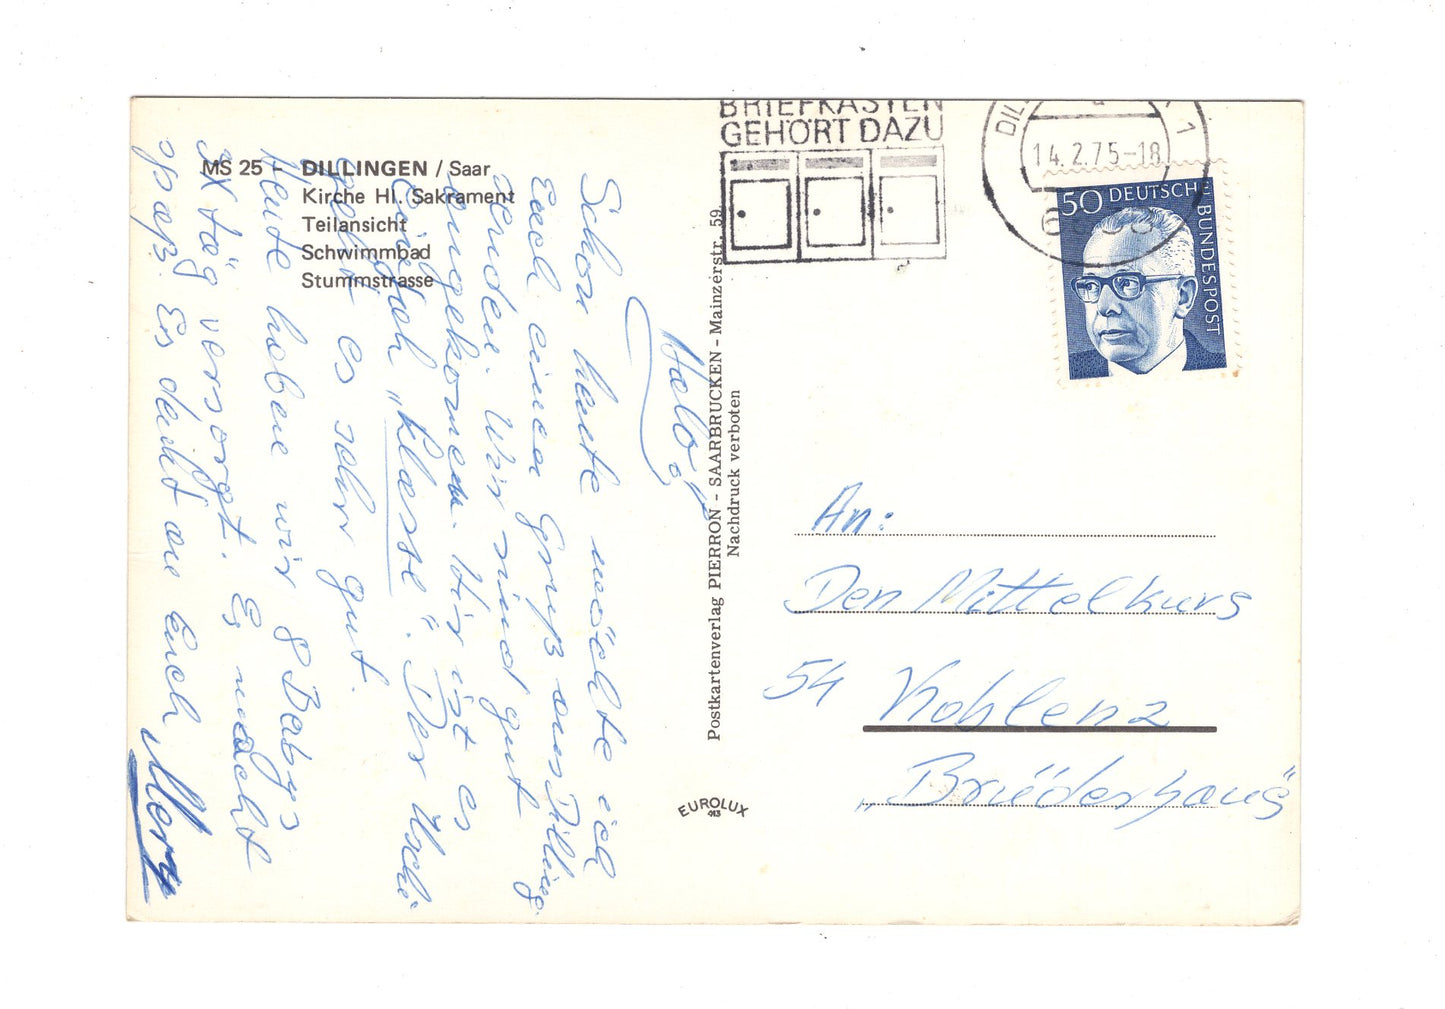 MS 25 - DILLINGEN / Saar
Kirche Hl. Sakrament
Teilansicht
Schwimmbad
Stummstrasse
Halo!
Schon heute möchte ich
Euch einen Gruß aus Dilling.
senden. Wir sind gut
angekommen. Hir ist es
einfach „Klasse“. Der Uschi
geht es sehr gut.
Heute haben wir 8 Babys
3X täg versorgt. Es macht
spaß. Es denkt an Euch
Mery
Postkartenverlag PIERRON - SAARBRUCKEN - Mainzerstr. 59
Nachdruck verboten
EUROLUX
BRIEFKASTEN
GEHÖRT DAZU
14.2.75-18
1
50 DEUTSCHE
BUNDESPOST
An:
Den Mittelkurs
54 Koblenz
„Brüderhaus“